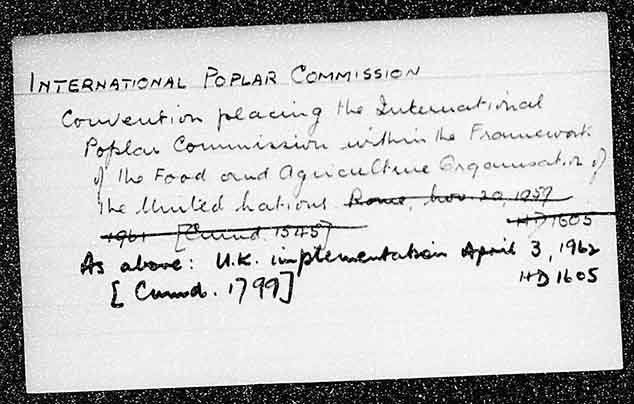 INTERNATIONAL POPLAR COMMISSION
Convention placing the International
Poplar Commission within the Framework
of the Food and Agriculture Organisation of
the United Nations Rome, Nov. 20, 1959
1961 [Cmnd. 1545] HD 1605
As above: U.K. implementation April 3, 1962
[Cmnd. 1799] HD 1605